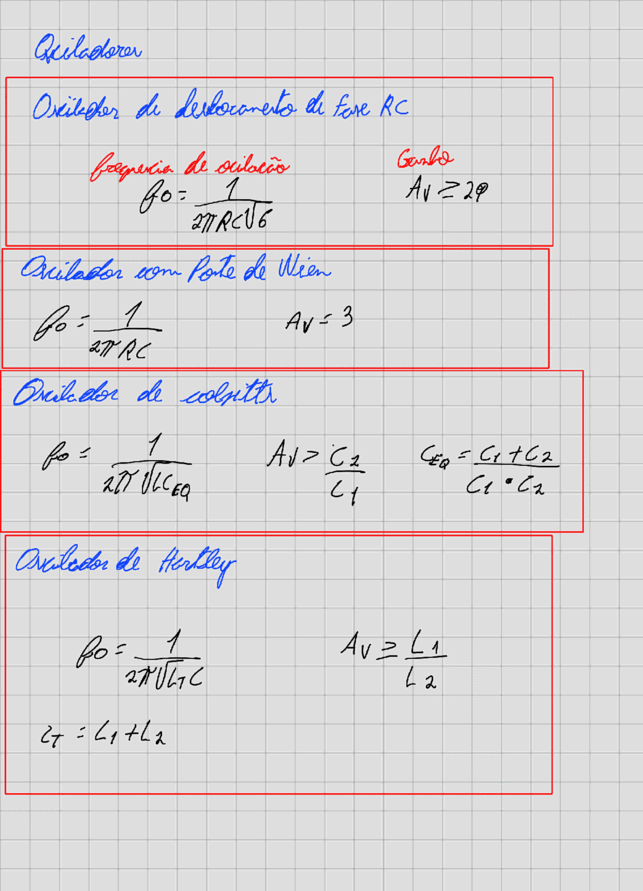 Osciladores
Oscilador de deslocamento de fase RC
frequencia de ocilação Ganho
fo = 1 / 2πRC√6 Av ≥ 29
Oscilador com Ponte de Wien
fo = 1 / 2πRC Av = 3
Oscilador de colpitts
fo = 1 / 2π√LCEQ Av > C2 / C1 CEQ = C1 + C2 / C1 • C2
Oscilador de Hartley
fo = 1 / 2π√LTC Av ≥ L1 / L2
LT = L1 + L2